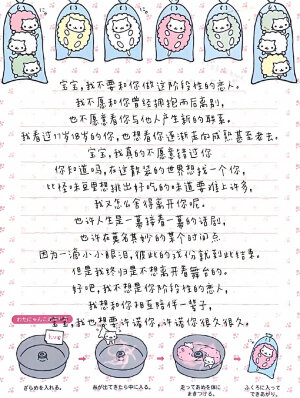 宝宝,我不要和你做这阶段性的恋人。
我不愿和你曾经拥抱而后离别,
也不愿意看你与他人产生新的联系。
我看过17岁18岁的你,也想看你逐渐走向成熟甚至老去。
宝宝,我真的不愿意错过你
你知道吗,在这散装的世界想找一个你,
比怪味豆里想挑出好吃的味道要难上许多,
我又怎么舍得离开你呢。
也许人生是一幕接着一幕的话剧,
也许在莫名其妙的某个时间点
因为一滴小小眼泪,彼此的戏份就到此结束。
但是我终归是不想离开着舞台的。
好吧,我不想是你阶段性的恋人,
我想和你相互陪伴一辈子,
わたにゃんこの
宝宝,我也想要许诺你,许诺你很久很久。
ざらめを入れる。
糸が出てきたら中に入る。
走ってあめを体にまきつける。
ふくろに入ってできあがり。